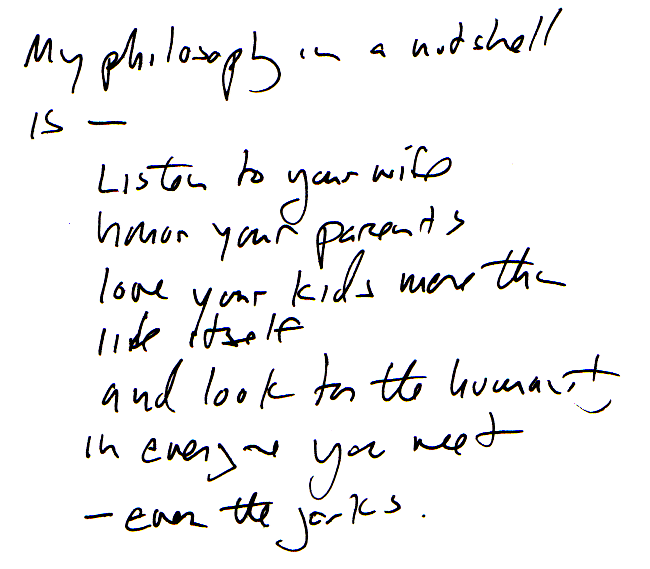 My philosophy in a nutshell
is —
Listen to your wife
honor your parents
love your kids more than
life itself
and look for the humanity
in everyone you meet
— even the jerks.